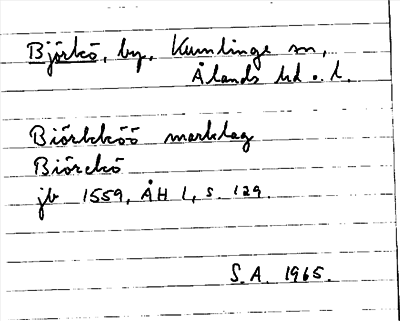 Björkö, by, Kumlinge sn,
Ålands hd o. l.
Biörkköö marklag
Biörckö
jb 1559, ÅH 1, s. 129.
S.A. 1965.